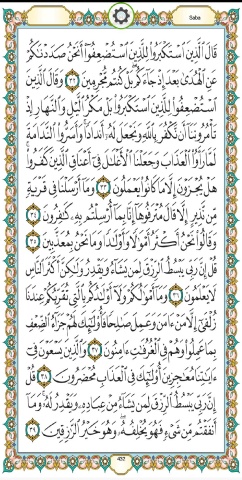 Saba
قَالَ ٱلَّذِينَ ٱسْتَكْبَرُوا۟ لِلَّذِينَ ٱسْتُضْعِفُوٓا۟ أَنَحْنُ صَدَدْنَٰكُمْ
عَنِ ٱلْهُدَىٰ بَعْدَ إِذْ جَآءَكُم بَلْ كُنتُم مُّجْرِمِينَ ٣٢ وَقَالَ ٱلَّذِينَ
ٱسْتُضْعِفُوا۟ لِلَّذِينَ ٱسْتَكْبَرُوا۟ بَلْ مَكْرُ ٱلَّيْلِ وَٱلنَّهَارِ إِذْ
تَأْمُرُونَنَآ أَن نَّكْفُرَ بِٱللَّهِ وَنَجْعَلَ لَهُۥٓ أَندَادًا وَأَسَرُّوا۟ ٱلنَّدَامَةَ
لَمَّا رَأَوُا۟ ٱلْعَذَابَ وَجَعَلْنَا ٱلْأَغْلَٰلَ فِىٓ أَعْنَاقِ ٱلَّذِينَ كَفَرُوا۟
هَلْ يُجْزَوْنَ إِلَّا مَا كَانُوا۟ يَعْمَلُونَ ٣٣ وَمَآ أَرْسَلْنَا فِى قَرْيَةٍ
مِّن نَّذِيرٍ إِلَّا قَالَ مُتْرَفُوهَآ إِنَّا بِمَآ أُرْسِلْتُم بِهِۦ كَٰفِرُونَ ٣٤
وَقَالُوا۟ نَحْنُ أَكْثَرُ أَمْوَٰلًا وَأَوْلَٰدًا وَمَا نَحْنُ بِمُعَذَّبِينَ ٣٥
قُلْ إِنَّ رَبِّى يَبْسُطُ ٱلرِّزْقَ لِمَن يَشَآءُ وَيَقْدِرُ وَلَٰكِنَّ أَكْثَرَ ٱلنَّاسِ
لَا يَعْلَمُونَ ٣٦ وَمَآ أَمْوَٰلُكُمْ وَلَآ أَوْلَٰدُكُم بِٱلَّتِى تُقَرِّبُكُمْ عِندَنَا
زُلْفَىٰٓ إِلَّا مَنْ ءَامَنَ وَعَمِلَ صَٰلِحًا فَأُو۟لَٰٓئِكَ لَهُمْ جَزَآءُ ٱلضِّعْفِ
بِمَا عَمِلُوا۟ وَهُمْ فِى ٱلْغُرُفَٰتِ ءَامِنُونَ ٣٧ وَٱلَّذِينَ يَسْعَوْنَ فِىٓ
ءَايَٰتِنَا مُعَٰجِزِينَ أُو۟لَٰٓئِكَ فِى ٱلْعَذَابِ مُحْضَرُونَ ٣٨ قُلْ
إِنَّ رَبِّى يَبْسُطُ ٱلرِّزْقَ لِمَن يَشَآءُ مِنْ عِبَادِهِۦ وَيَقْدِرُ لَهُۥ وَمَآ
أَنفَقْتُم مِّن شَىْءٍ فَهُوَ يُخْلِفُهُۥ وَهُوَ خَيْرُ ٱلرَّٰزِقِينَ ٣٩
432